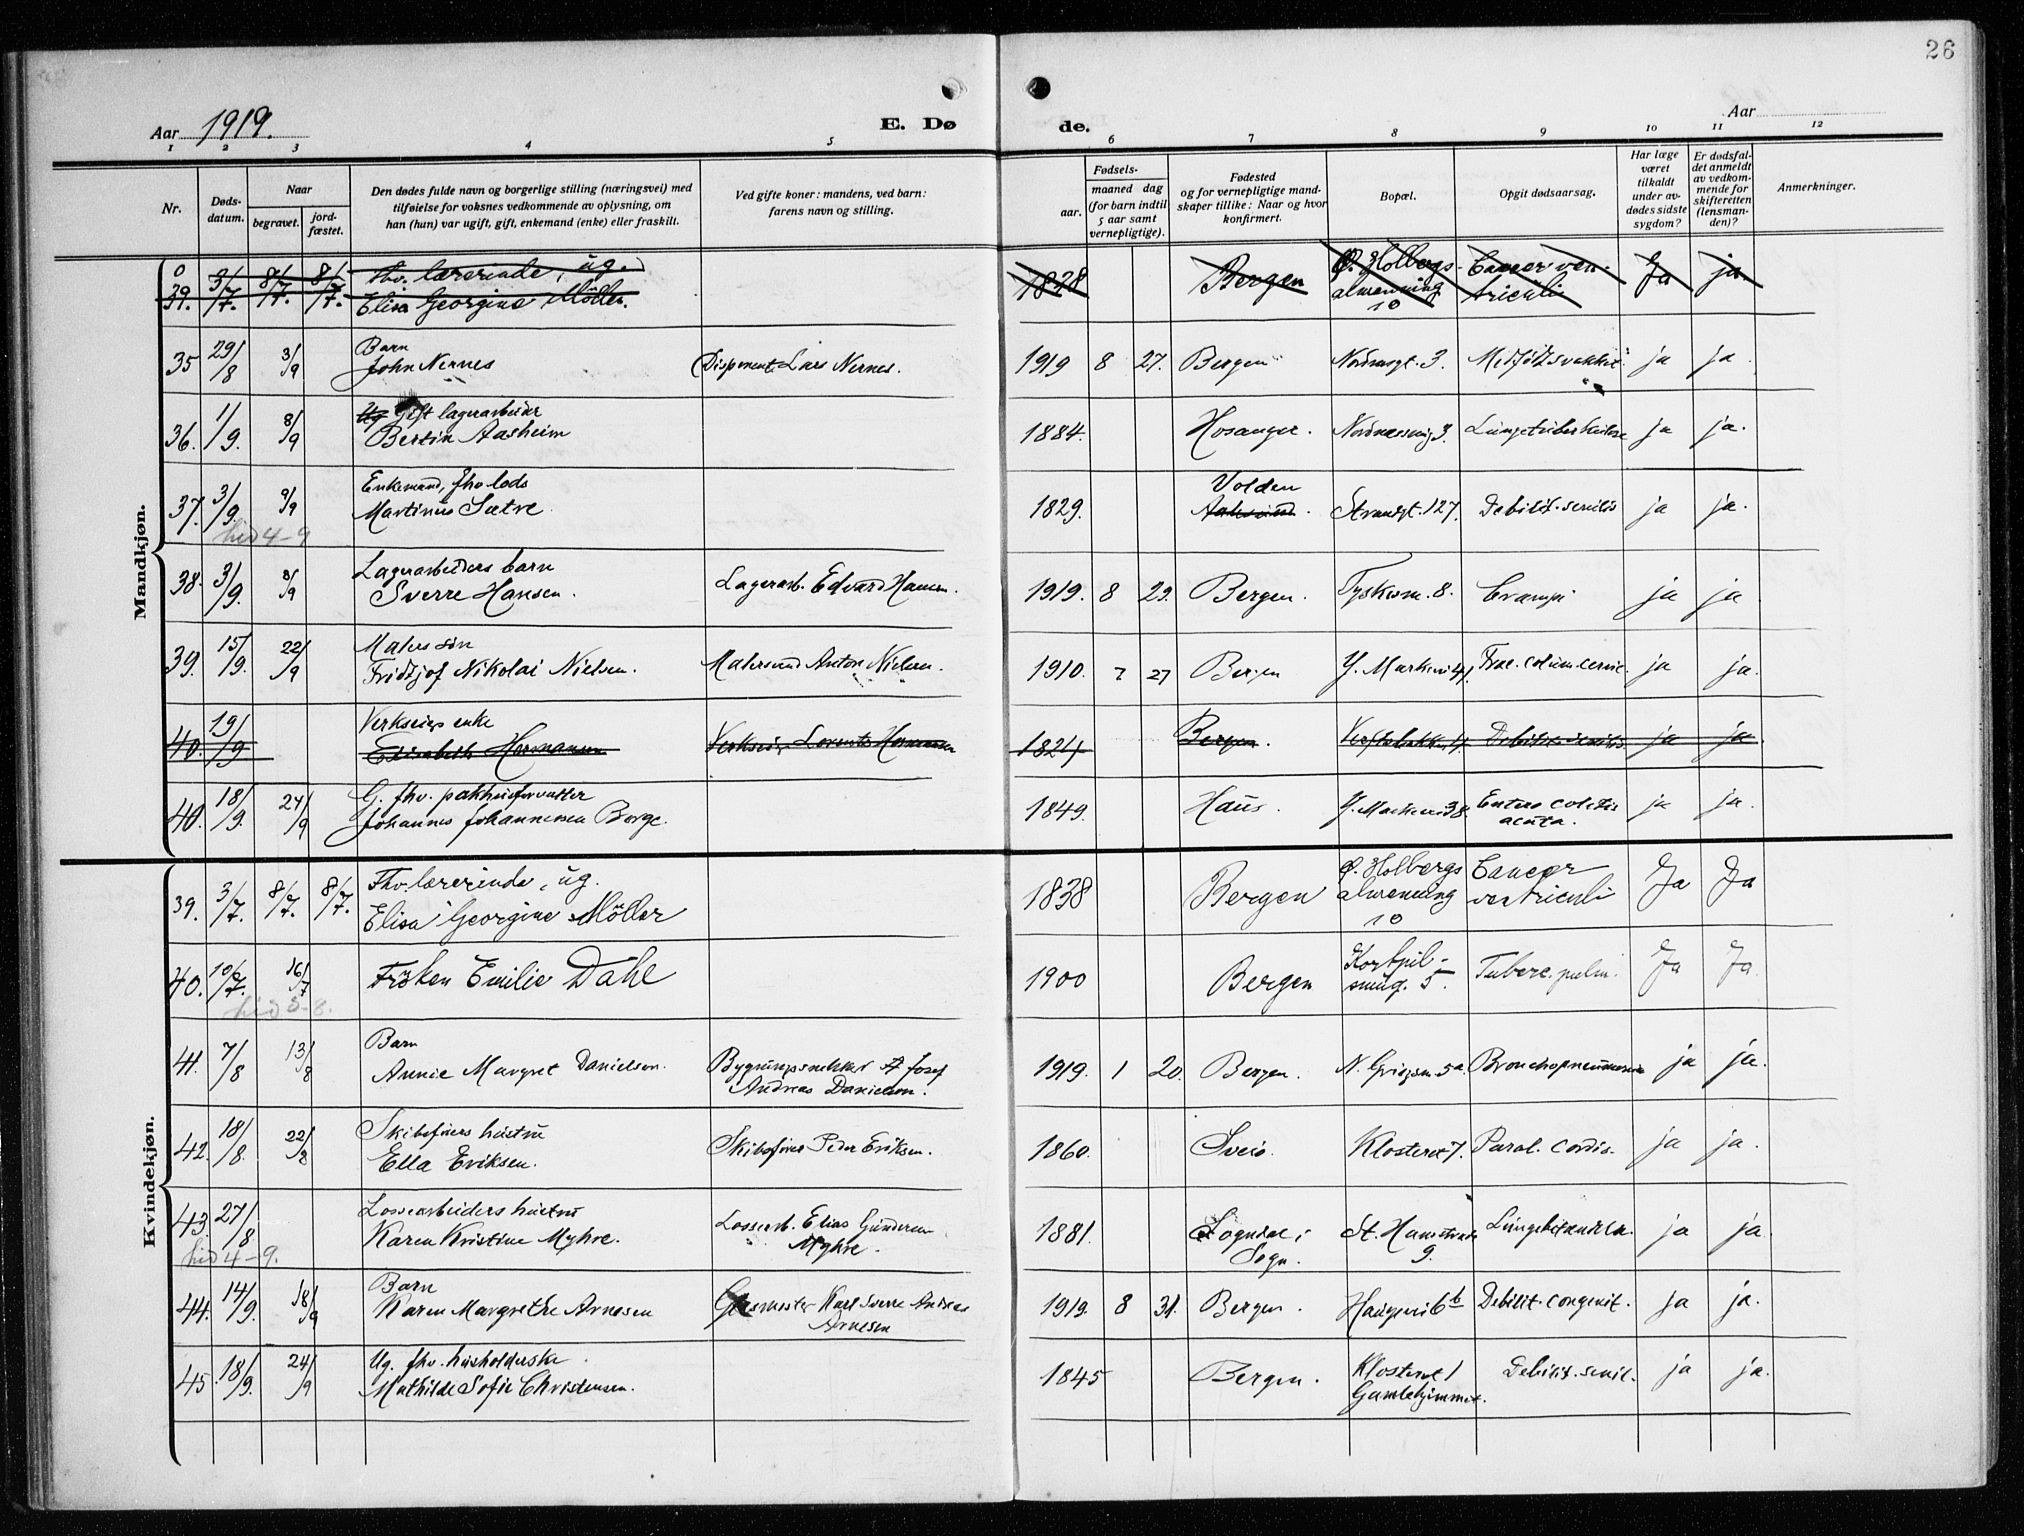 26
Aar 1919.
E. Dø
de.
Aar
1 2 3 4 5 6 7 8 9 10 11 12
Nr.
Døds-
datum.
Naar
begravet.
jord-
fæstet.
Den dødes fulde navn og borgerlige stilling (næringsvei) med
tilføielse for voksnes vedkommende av oplysning, om
han (hun) var ugift, gift, enkemand (enke) eller fraskilt.
Ved gifte koner: mandens, ved barn:
farens navn og stilling.
Fødsels-
aar.
maaned dag
(for barn indtil
5 aar samt
vernepligtige).
Fødested
og for vernepligtige mand-
skaper tillike: Naar og hvor
konfirmert.
Bopæl.
Opgit dødsaarsag.
Har læge
været
tilkaldt
under av-
dødes sidste
sygdom?
Er dødsfal-
det anmeldt
av vedkom-
mende for
skifteretten
(lensman-
den)?
Anmerkninger.
Mandkjøn.
0
39. 3/7. 8/7. 8/7. Fhv. lærerinde, ug.
Elisa Georgine Möller.
1828 Bergen Ø. Holbergs-
almenning
10
Cancer ven-
triculi
Ja ja
35 29/8 3/9 Barn
John Nernes
Disponent Lars Nernes.
1919 8 27. Bergen Nordnesgt. 3. Medfødt svakhet ja ja
36. 1/9. 8/9 Ug Gift lagerarbeider
Bertin Aasheim
1884. Hosanger. Nordnesveig 3. Lungetuberkulose ja ja.
37. 3/9. 9/9 Enkemand, fhv lods
Martinus Sætre
1829. Volden
Strandgt. 127. Debilit. senilis ja ja.
hid 4-9
38. 3/9. 8/9 Lagerarbeiders barn
Sverre Hansen.
Lagerarb. Edvard Hansen.
1919. 8 29. Bergen. Tyskesm. 8. Crampi ja ja
39. 15/9. 22/9 Malers søn
Fridtjof Nikolai Nielsen.
Malersvend Anton Nielsen.
1910. 7 27 Bergen Y. Markevei 41. Frac. colum. cervic. ja ja.
40. 19/9 Verkseiers enke
Elisabeth Hermansen
Verkseier Lorentz Hermansen
1824 Bergen. Verftsbakk. 14. Debilitas senilis ja ja.
40. 18/9. 24/9 G. fhv. pakhusforvalter
Johannes Johannessen Borge.
1849. Haus. Y. Markevei 38. Entero colitis
acuta.
ja ja.
Kvindekjøn.
39. 3/7. 8/7. 8/7. Fhv. lærerinde, ug.
Elisa Georgine Möller
1838 Bergen Ø. Holbergs
almenning
10
Cancer
ventriculi
Ja Ja
40. 10/7. 16/7 Frøken Emilie Dahl
1900 Bergen Kortpil-
smug. 5. Tuberc. pulm. Ja Ja.
hid 5-8.
41. 7/8 13/8 Barn
Annie Margret Danielsen.
Bygningssnekker Josef
Andreas Danielsen.
1919. 1 20. Bergen. N. Griegsm 5a. Bronchopneumonia ja ja.
42. 18/8. 22/8 Skibsførers hustru
Ella Eriksen.
Skibsfører Peder Eriksen.
1860. Sveio. Klosteret 7. Paral. cordis. ja ja.
43. 27/8 Lossearbeiders hustru
Karen Kristine Myhre.
Lossearb. Elias Gundersen
Myhre.
1881. Sogndal i
Sogn.
St. Hansstræde
9.
ja ja.
hid 4-9.
44. 14/9. 18/9 Barn
Karen Margrethe Arnesen
Glasmester Karl Sverre Andreas
Arnesen
1919. 8 31. Bergen. Haugevei 6b Debilit. congenit. ja ja.
45 18/9. 24/9 Ug. fhv. husholderske
Mathilde Sofie Christensen.
1845 Bergen. Klosteret 1
Gamlehjemmet.
Debilit. senil. ja ja.